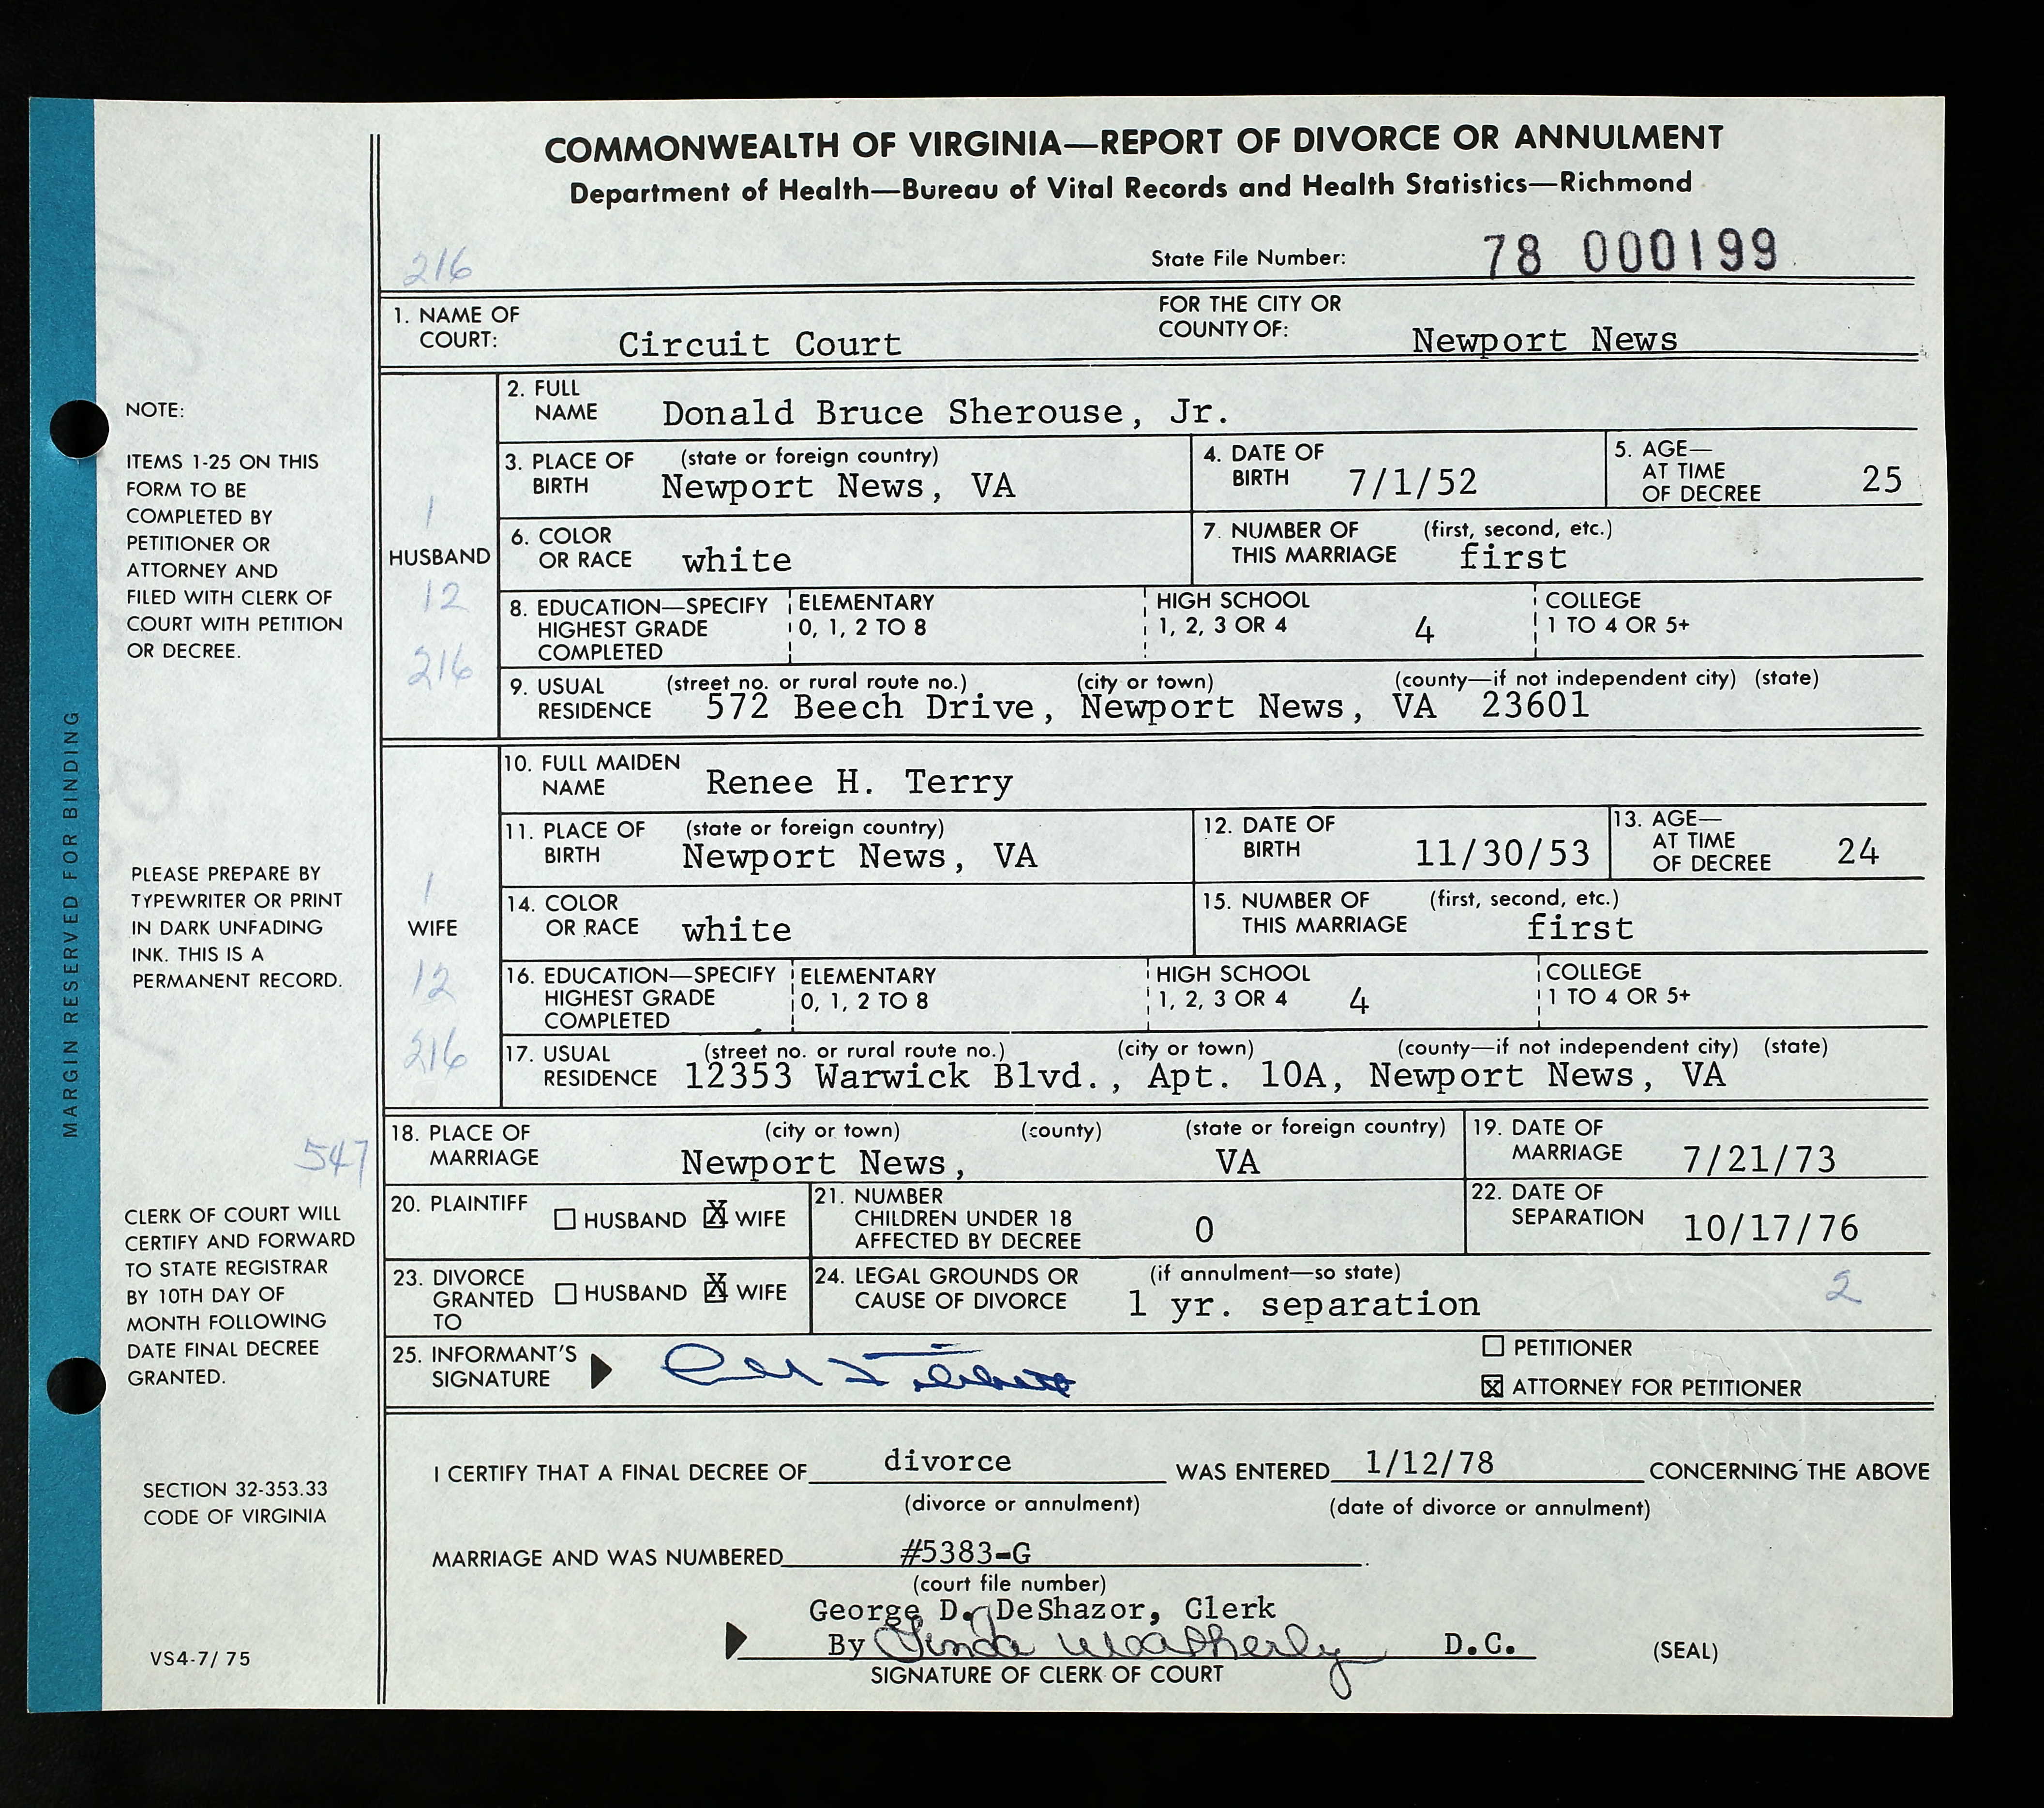 COMMONWEALTH OF VIRGINIA—REPORT OF DIVORCE OR ANNULMENT
Department of Health—Bureau of Vital Records and Health Statistics—Richmond
216
State File Number: 78 000199
1. NAME OF COURT: Circuit Court FOR THE CITY OR COUNTY OF: Newport News
HUSBAND
1
12
216
2. FULL NAME Donald Bruce Sherouse, Jr.
3. PLACE OF BIRTH (state or foreign country) Newport News, VA
4. DATE OF BIRTH 7/1/52
5. AGE—AT TIME OF DECREE 25
6. COLOR OR RACE white
7. NUMBER OF THIS MARRIAGE (first, second, etc.) first
8. EDUCATION—SPECIFY HIGHEST GRADE COMPLETED ELEMENTARY 0, 1, 2 TO 8 HIGH SCHOOL 1, 2, 3 OR 4 4 COLLEGE 1 TO 4 OR 5+
9. USUAL RESIDENCE (street no. or rural route no.) (city or town) (county—if not independent city) (state)
572 Beech Drive, Newport News, VA 23601
WIFE
1
12
216
10. FULL MAIDEN NAME Renee H. Terry
11. PLACE OF BIRTH (state or foreign country) Newport News, VA
12. DATE OF BIRTH 11/30/53
13. AGE—AT TIME OF DECREE 24
14. COLOR OR RACE white
15. NUMBER OF THIS MARRIAGE (first, second, etc.) first
16. EDUCATION—SPECIFY HIGHEST GRADE COMPLETED ELEMENTARY 0, 1, 2 TO 8 HIGH SCHOOL 1, 2, 3 OR 4 4 COLLEGE 1 TO 4 OR 5+
17. USUAL RESIDENCE (street no. or rural route no.) (city or town) (county—if not independent city) (state)
12353 Warwick Blvd., Apt. 10A, Newport News, VA
547
18. PLACE OF MARRIAGE (city or town) (county) (state or foreign country) Newport News, VA
19. DATE OF MARRIAGE 7/21/73
20. PLAINTIFF HUSBAND X WIFE
21. NUMBER CHILDREN UNDER 18 AFFECTED BY DECREE 0
22. DATE OF SEPARATION 10/17/76
23. DIVORCE GRANTED TO HUSBAND X WIFE
24. LEGAL GROUNDS OR CAUSE OF DIVORCE (if annulment—so state) 1 yr. separation 2
25. INFORMANT'S SIGNATURE
PETITIONER
X ATTORNEY FOR PETITIONER
I CERTIFY THAT A FINAL DECREE OF divorce WAS ENTERED 1/12/78 CONCERNING THE ABOVE
(divorce or annulment) (date of divorce or annulment)
MARRIAGE AND WAS NUMBERED #5383-G.
(court file number)
George D. DeShazor, Clerk
By Linda Weatherly D.C. (SEAL)
SIGNATURE OF CLERK OF COURT
MARGIN RESERVED FOR BINDING
NOTE:
ITEMS 1-25 ON THIS
FORM TO BE
COMPLETED BY
PETITIONER OR
ATTORNEY AND
FILED WITH CLERK OF
COURT WITH PETITION
OR DECREE.
PLEASE PREPARE BY
TYPEWRITER OR PRINT
IN DARK UNFADING
INK. THIS IS A
PERMANENT RECORD.
CLERK OF COURT WILL
CERTIFY AND FORWARD
TO STATE REGISTRAR
BY 10TH DAY OF
MONTH FOLLOWING
DATE FINAL DECREE
GRANTED.
SECTION 32-353.33
CODE OF VIRGINIA
VS4-7/ 75